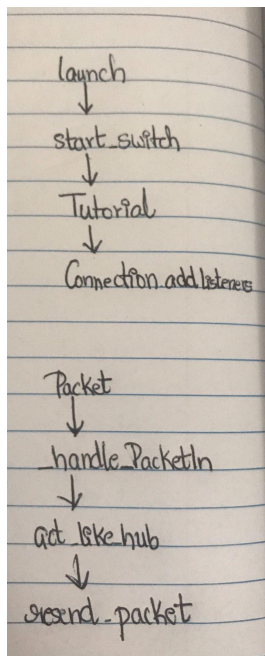 launch
start_switch
Tutorial
Connection.addlisteners
Packet
_handle_PacketIn
act_like_hub
resend_packet